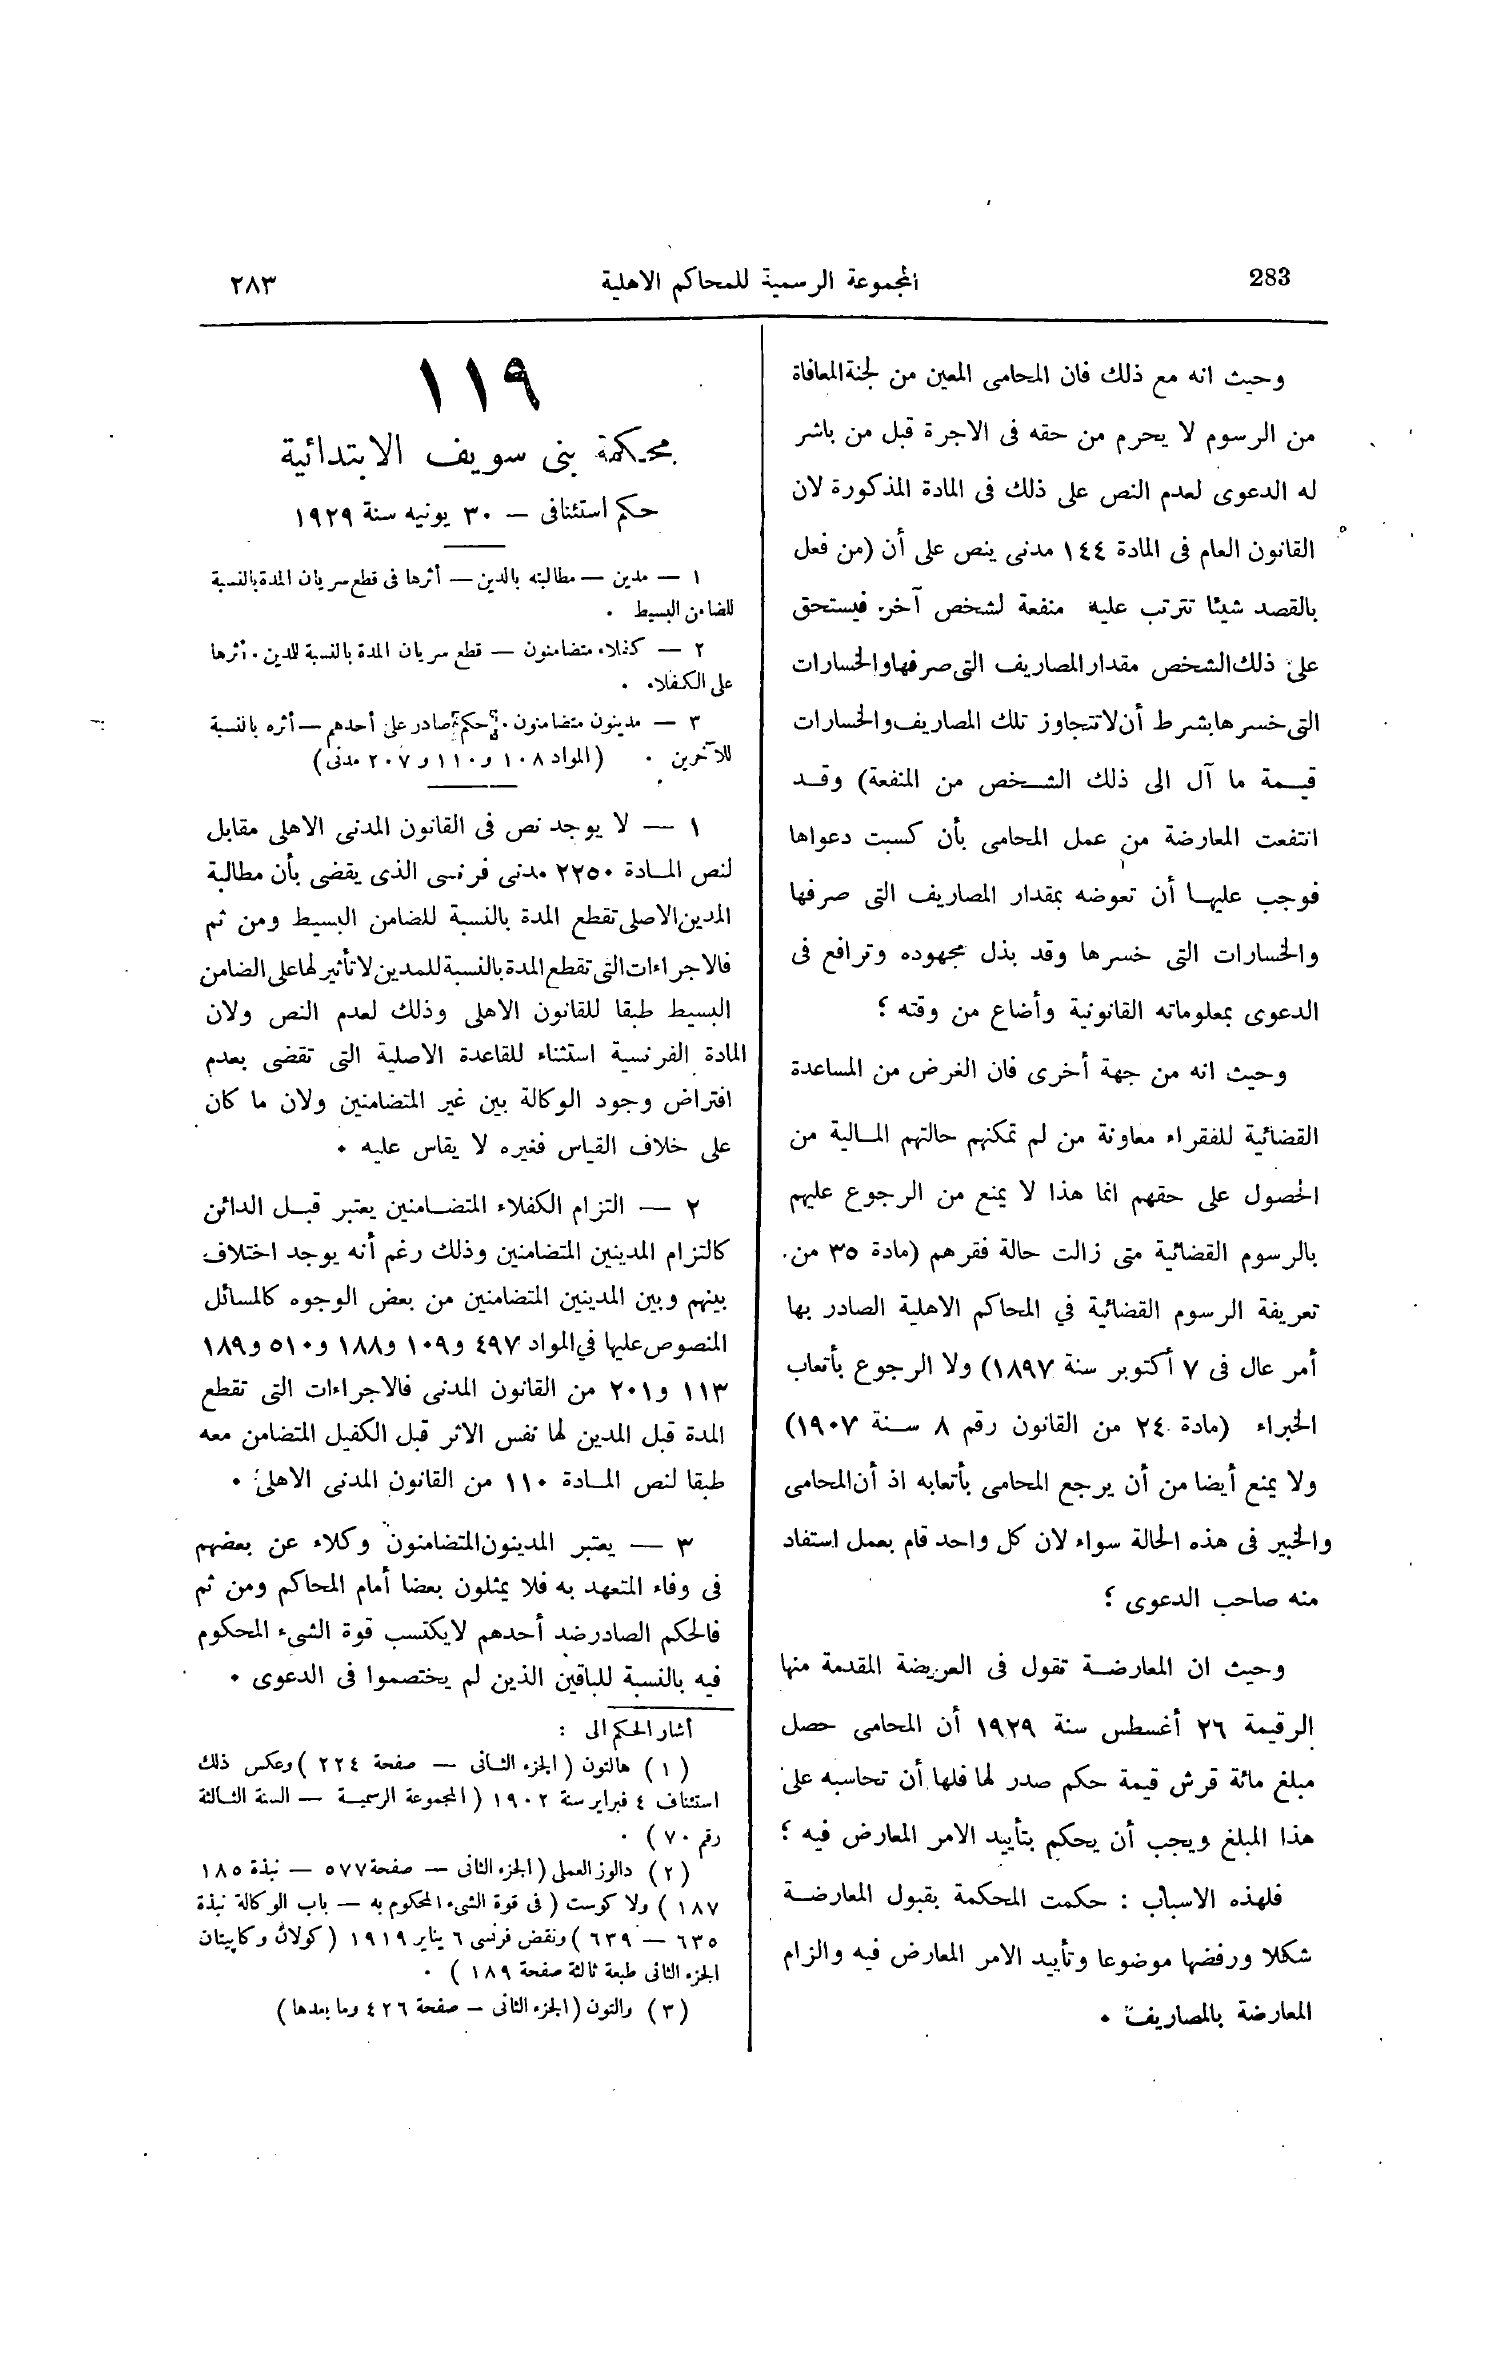 283
المجموعة الرسمية للمحاكم الاهلية
٢٨٣
وحيث انه مع ذلك فان المحامى المعين من لجنة المعافاة
من الرسوم لا يحرم من حقه فى الاجرة قبل من باشر
له الدعوى لعدم النص على ذلك فى المادة المذكورة لان
القانون العام فى المادة ١٤٤ مدنى ينص على أن (من فعل
بالقصد شيئا تترتب عليه منفعة لشخص آخر فيستحق
على ذلك الشخص مقدار المصاريف التى صرفها والخسارات
التى خسرها بشرط أن لا تتجاوز تلك المصاريف والخسارات
قيمة ما آل الى ذلك الشخص من المنفعة) وقد
انتفعت المعارضة من عمل المحامى بأن كسبت دعواها
فوجب عليها أن تعوضه بمقدار المصاريف التى صرفها
والخسارات التى خسرها وقد بذل مجهوده وترافع فى
الدعوى بمعلوماته القانونية وأضاع من وقته ؛
وحيث انه من جهة أخرى فان الغرض من المساعدة
القضائية للفقراء معاونة من لم تمكنهم حالتهم المالية من
الحصول على حقهم انما هذا لا يمنع من الرجوع عليهم
بالرسوم القضائية متى زالت حالة فقرهم (مادة ٣٥ من
تعريفة الرسوم القضائية في المحاكم الاهلية الصادر بها
أمر عال فى ٧ أكتوبر سنة ١٨٩٧) ولا الرجوع بأتعاب
الخبراء (مادة ٢٤ من القانون رقم ٨ سنة ١٩٠٧)
ولا يمنع أيضا من أن يرجع المحامى بأتعابه اذ أن المحامى
والخبير فى هذه الحالة سواء لان كل واحد قام بعمل استفاد
منه صاحب الدعوى ؛
وحيث ان المعارضة تقول فى العريضة المقدمة منها
الرقيمة ٢٦ أغسطس سنة ١٩٢٩ أن المحامى حصل
مبلغ مائة قرش قيمة حكم صدر لها فلها أن تحاسبه على
هذا المبلغ ويجب أن يحكم بتأييد الامر المعارض فيه ؛
فلهذه الاسباب : حكمت المحكمة بقبول المعارضة
شكلا ورفضها موضوعا وتأييد الامر المعارض فيه والزام
المعارضة بالمصاريف .
١١٩
محكمة بنى سويف الابتدائية
حكم استئنافى — ٣٠ يونيه سنة ١٩٢٩
١ — مدين — مطالبته بالدين — أثرها فى قطع سريان المدة بالنسبة
للضامن البسيط .
٢ — كفلاء متضامنون — قطع سريان المدة بالنسبة للدين . أثرها
على الكفلاء .
٣ — مدينون متضامنون . حكم صادر على أحدهم — أثره بالنسبة
للآخرين . (المواد ١٠٨ و ١١٠ و ٢٠٧ مدنى)
١ — لا يوجد نص فى القانون المدنى الاهلى مقابل
لنص المادة ٢٢٥٠ مدنى فرنسى الذى يقضى بأن مطالبة
المدين الاصلى تقطع المدة بالنسبة للضامن البسيط ومن ثم
فالاجراءات التى تقطع المدة بالنسبة للمدين لا تأثير لها على الضامن
البسيط طبقا للقانون الاهلى وذلك لعدم النص ولان
المادة الفرنسية استثناء للقاعدة الاصلية التى تقضى بعدم
افتراض وجود الوكالة بين غير المتضامنين ولان ما كان
على خلاف القياس فغيره لا يقاس عليه .
٢ — التزام الكفلاء المتضامنين يعتبر قبل الدائن
كالتزام المدينين المتضامنين وذلك رغم أنه يوجد اختلاف
بينهم وبين المدينين المتضامنين من بعض الوجوه كالمسائل
المنصوص عليها في المواد ٤٩٧ و ١٠٩ و ١٨٨ و ٥١٠ و ١٨٩
١١٣ و ٢٠١ من القانون المدنى فالاجراءات التى تقطع
المدة قبل المدين لها نفس الاثر قبل الكفيل المتضامن معه
طبقا لنص المادة ١١٠ من القانون المدنى الاهلى .
٣ — يعتبر المدينون المتضامنون وكلاء عن بعضهم
فى وفاء المتعهد به فلا يمثلون بعضا أمام المحاكم ومن ثم
فالحكم الصادر ضد أحدهم لا يكتسب قوة الشىء المحكوم
فيه بالنسبة للباقين الذين لم يختصموا فى الدعوى .
أشار الحكم الى :
(١) هالتون (الجزء الثانى — صفحة ٢٢٤) وعكس ذلك
استئناف ٤ فبراير سنة ١٩٠٢ (المجموعة الرسمية — السنة الثالثة
رقم ٧٠) .
(٢) دالوز العملى (الجزء الثانى — صفحة ٥٧٧ — نبذة ١٨٥
١٨٧) ولا كوست (فى قوة الشىء المحكوم به — باب الوكالة نبذة
٦٣٥ — ٦٣٩) ونقض فرنسى ٦ يناير ١٩١٩ (كولان وكابيتان
الجزء الثانى طبعة ثالثة صفحة ١٨٩) .
(٣) والتون (الجزء الثانى — صفحة ٤٢٦ وما بعدها)